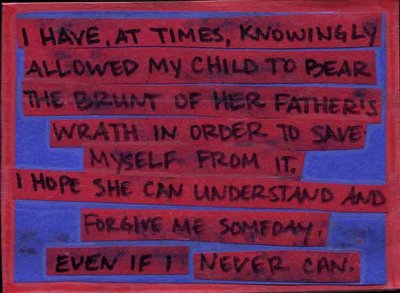 I HAVE, AT TIMES, KNOWINGLY
ALLOWED MY CHILD TO BEAR
THE BRUNT OF HER FATHER'S
WRATH IN ORDER TO SAVE
MYSELF FROM IT.
I HOPE SHE CAN UNDERSTAND AND
FORGIVE ME SOMEDAY.
EVEN IF I NEVER CAN.